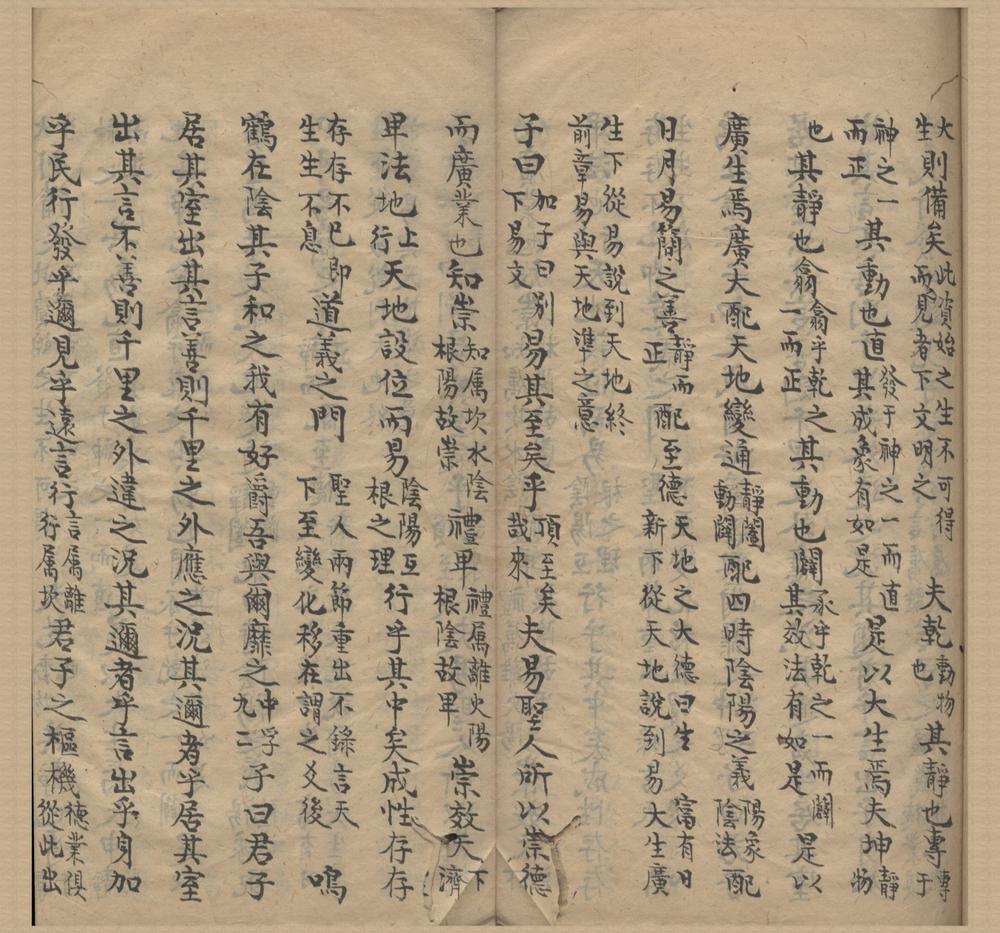 大生則備矣此資始之生不可得而見者下文明之夫乾動物也其靜也專專于
神之一而正其動也直發于神之一而直其成象有如是是以大生焉夫坤靜物
也其靜也翕翕乎乾之一而正其動也闢承乎乾之一而闢其效法有如是是以
廣生焉廣大配天地變通靜闔動闢配四時陰陽之義陽象陰法配
日月易簡之善靜而正配至德天地之大德曰生富有日新下從天地說到易大生廣
生下從易說到天地終前章易與天地準之意
子曰加子曰別下易文易其至矣乎項至矣哉來夫易聖人所以崇德
而廣業也知崇知属坎水陰根陽故崇禮卑禮属離火陽根陰故卑崇效天下濟
卑法地上行天地設位而易陰陽互根之理行乎其中矣成性存存
存存不已即生生不息道義之門聖人兩節重出不錄言天下至變化移在謂之爻後鳴
鶴在陰其子和之我有好爵吾與爾靡之中孚九二子曰君子
居其室出其言善則千里之外應之況其邇者乎居其室
出其言不善則千里之外違之況其邇者乎言出乎身加
乎民行發乎邇見乎遠言行言属離行属坎君子之樞機德業俱從此出